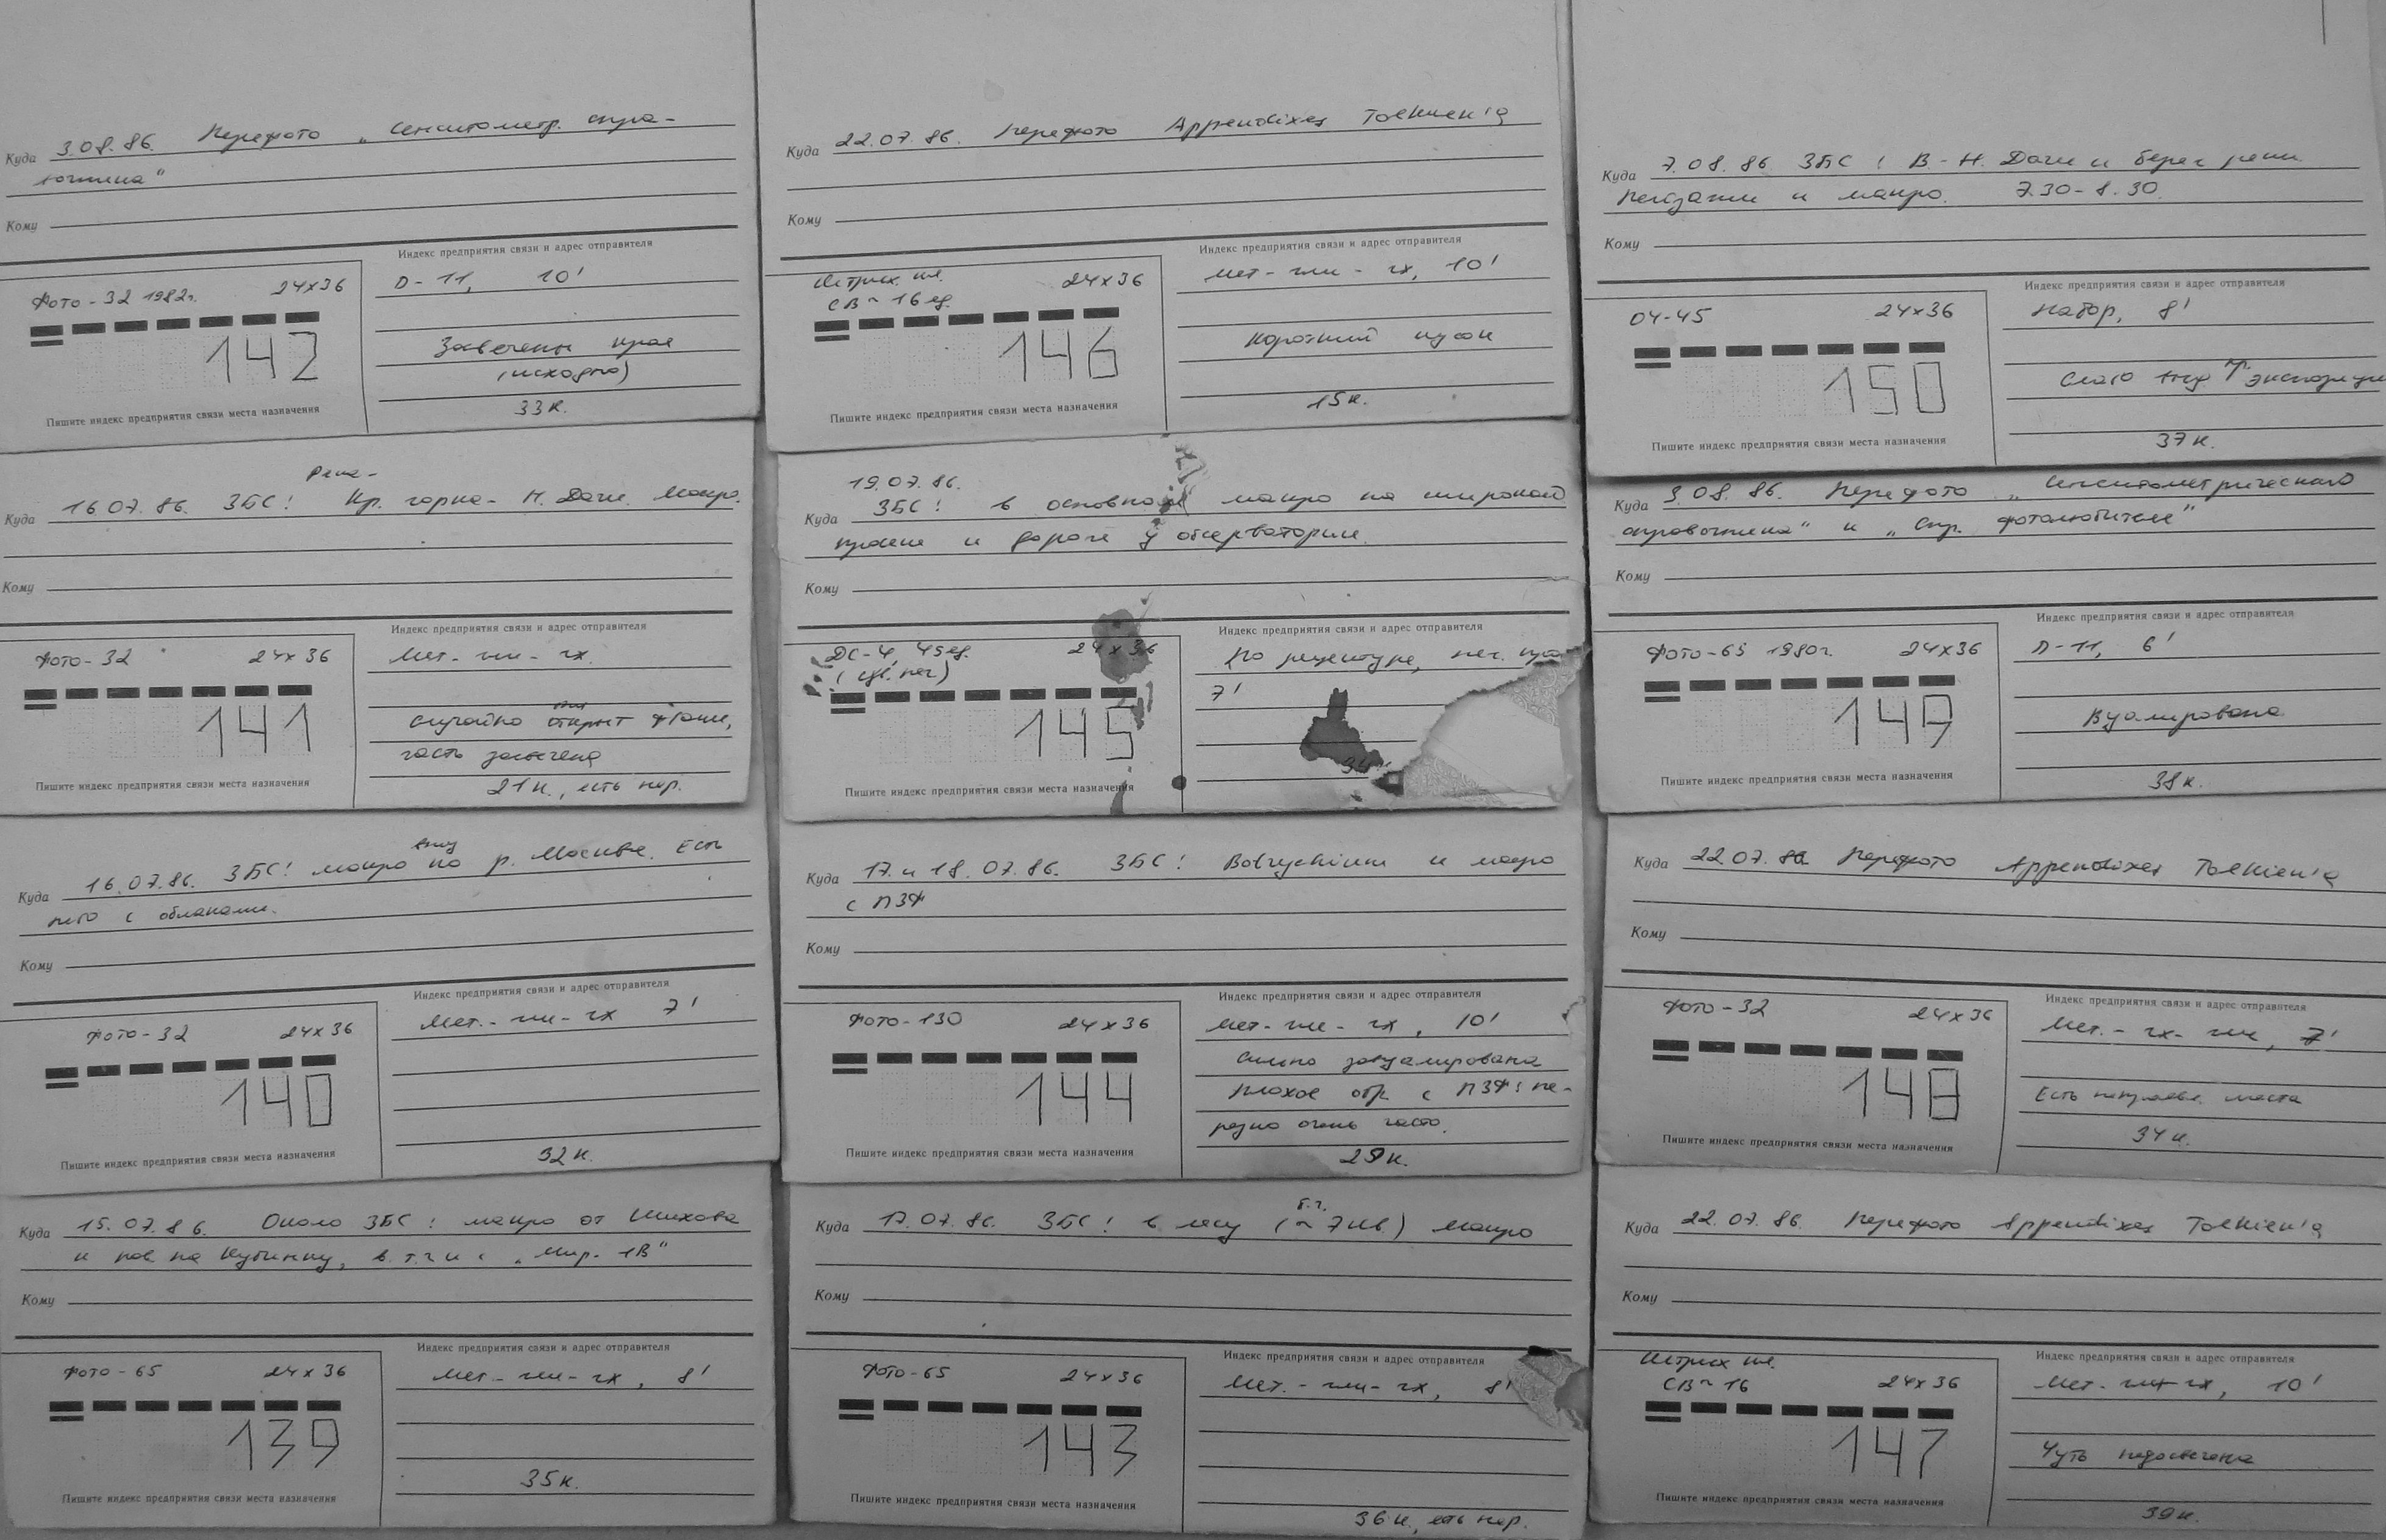 Куда 3.08.86. Перефото „Сенситометр. спра-
вочника“
Кому
Индекс предприятия связи и адрес отправителя
Фото-32 1982г. 24х36
D-11, 10'
142
Засвечены края
(исходно)
33к.
Пишите индекс предприятия связи места назначения
Река-
Куда 16.07.86. ЗБС! Кр. горка- Н. Дачи. Макро.
Кому
Индекс предприятия связи и адрес отправителя
Фото-32 24х36
Мет.-гли-гх.
141
Случайно был открыт ф/аппи,
часть засвечена
21к., есть нер.
Пишите индекс предприятия связи места назначения
вниз
Куда 16.07.86. ЗБС! макро по р. Москве. Есть
небо с облаками.
Кому
Индекс предприятия связи и адрес отправителя
Фото-32 24х36
Мет.-гли-гх 7'
140
32к.
Пишите индекс предприятия связи места назначения
Куда 15.07.86. Около ЗБС: макро от Шихова
и пов на Кубинку, в т.ч и с „Мир-1В“
Кому
Индекс предприятия связи и адрес отправителя
Фото-65 24х36
Мет.-гли-гх, 8'
139
35к.
Пишите индекс предприятия связи места назначения
Куда 22.07.86. Перефото Appendixes Tolkien'а
Кому
Индекс предприятия связи и адрес отправителя
Штрих. пл. 24х36
СВ~16 ед.
Мет-гли-гх, 10'
146
Короткий кусок
15к.
Пишите индекс предприятия связи места назначения
19.07.86.
Куда ЗБС! в основном макро на широкой
просеке и дороге у обсерватории.
Кому
Индекс предприятия связи и адрес отправителя
ДС-4, 45ед. 24х36
(цв. нег)
По рецептуре, нег.
7'
145
Пишите индекс предприятия связи места назначения
Куда 17. и 18.07.86. ЗБС! Botrychium и макро
с ПЗФ
Кому
Индекс предприятия связи и адрес отправителя
Фото-130 24х36
Мет-гли-гх, 10'
144
Сильно завуалирована
Плохое обр. с ПЗФ: не-
резко очень часто.
29к.
Пишите индекс предприятия связи места назначения
б.ч.
Куда 17.07.86. ЗБС! в лесу (~7кв.) макро
Кому
Индекс предприятия связи и адрес отправителя
Фото-65 24х36
Мет.-гли-гх, 8'
143
36к, есть нер.
Пишите индекс предприятия связи места назначения
Куда 7.08.86 ЗБС: В-Н. Дачи и берег реки.
Пейзажи и макро. 7.30-8.30.
Кому
Индекс предприятия связи и адрес отправителя
ОЧ-45 24х36
Набор, 8'
150
37к.
Пишите индекс предприятия связи места назначения
Куда 3.08.86. Перефото „Сенситометрического
справочника“ и „Спр. фотолюбителя“
Кому
Индекс предприятия связи и адрес отправителя
Фото-65 1980г. 24х36
D-11, 6'
149
Вуалирована
38к.
Пишите индекс предприятия связи места назначения
Куда 22.07.86 Перефото Appendixes Tolkien'а
Кому
Индекс предприятия связи и адрес отправителя
Фото-32 24х36
Мет.-гх-гли, 7'
148
Есть непроявл. места
34к.
Пишите индекс предприятия связи места назначения
Куда 22.07.86. Перефото Appendixes Tolkien'а
Кому
Индекс предприятия связи и адрес отправителя
Штрих пл.
СВ~16 24х36
Мет-гли-гх, 10'
147
Чуть недосвечена
39к.
Пишите индекс предприятия связи места назначения